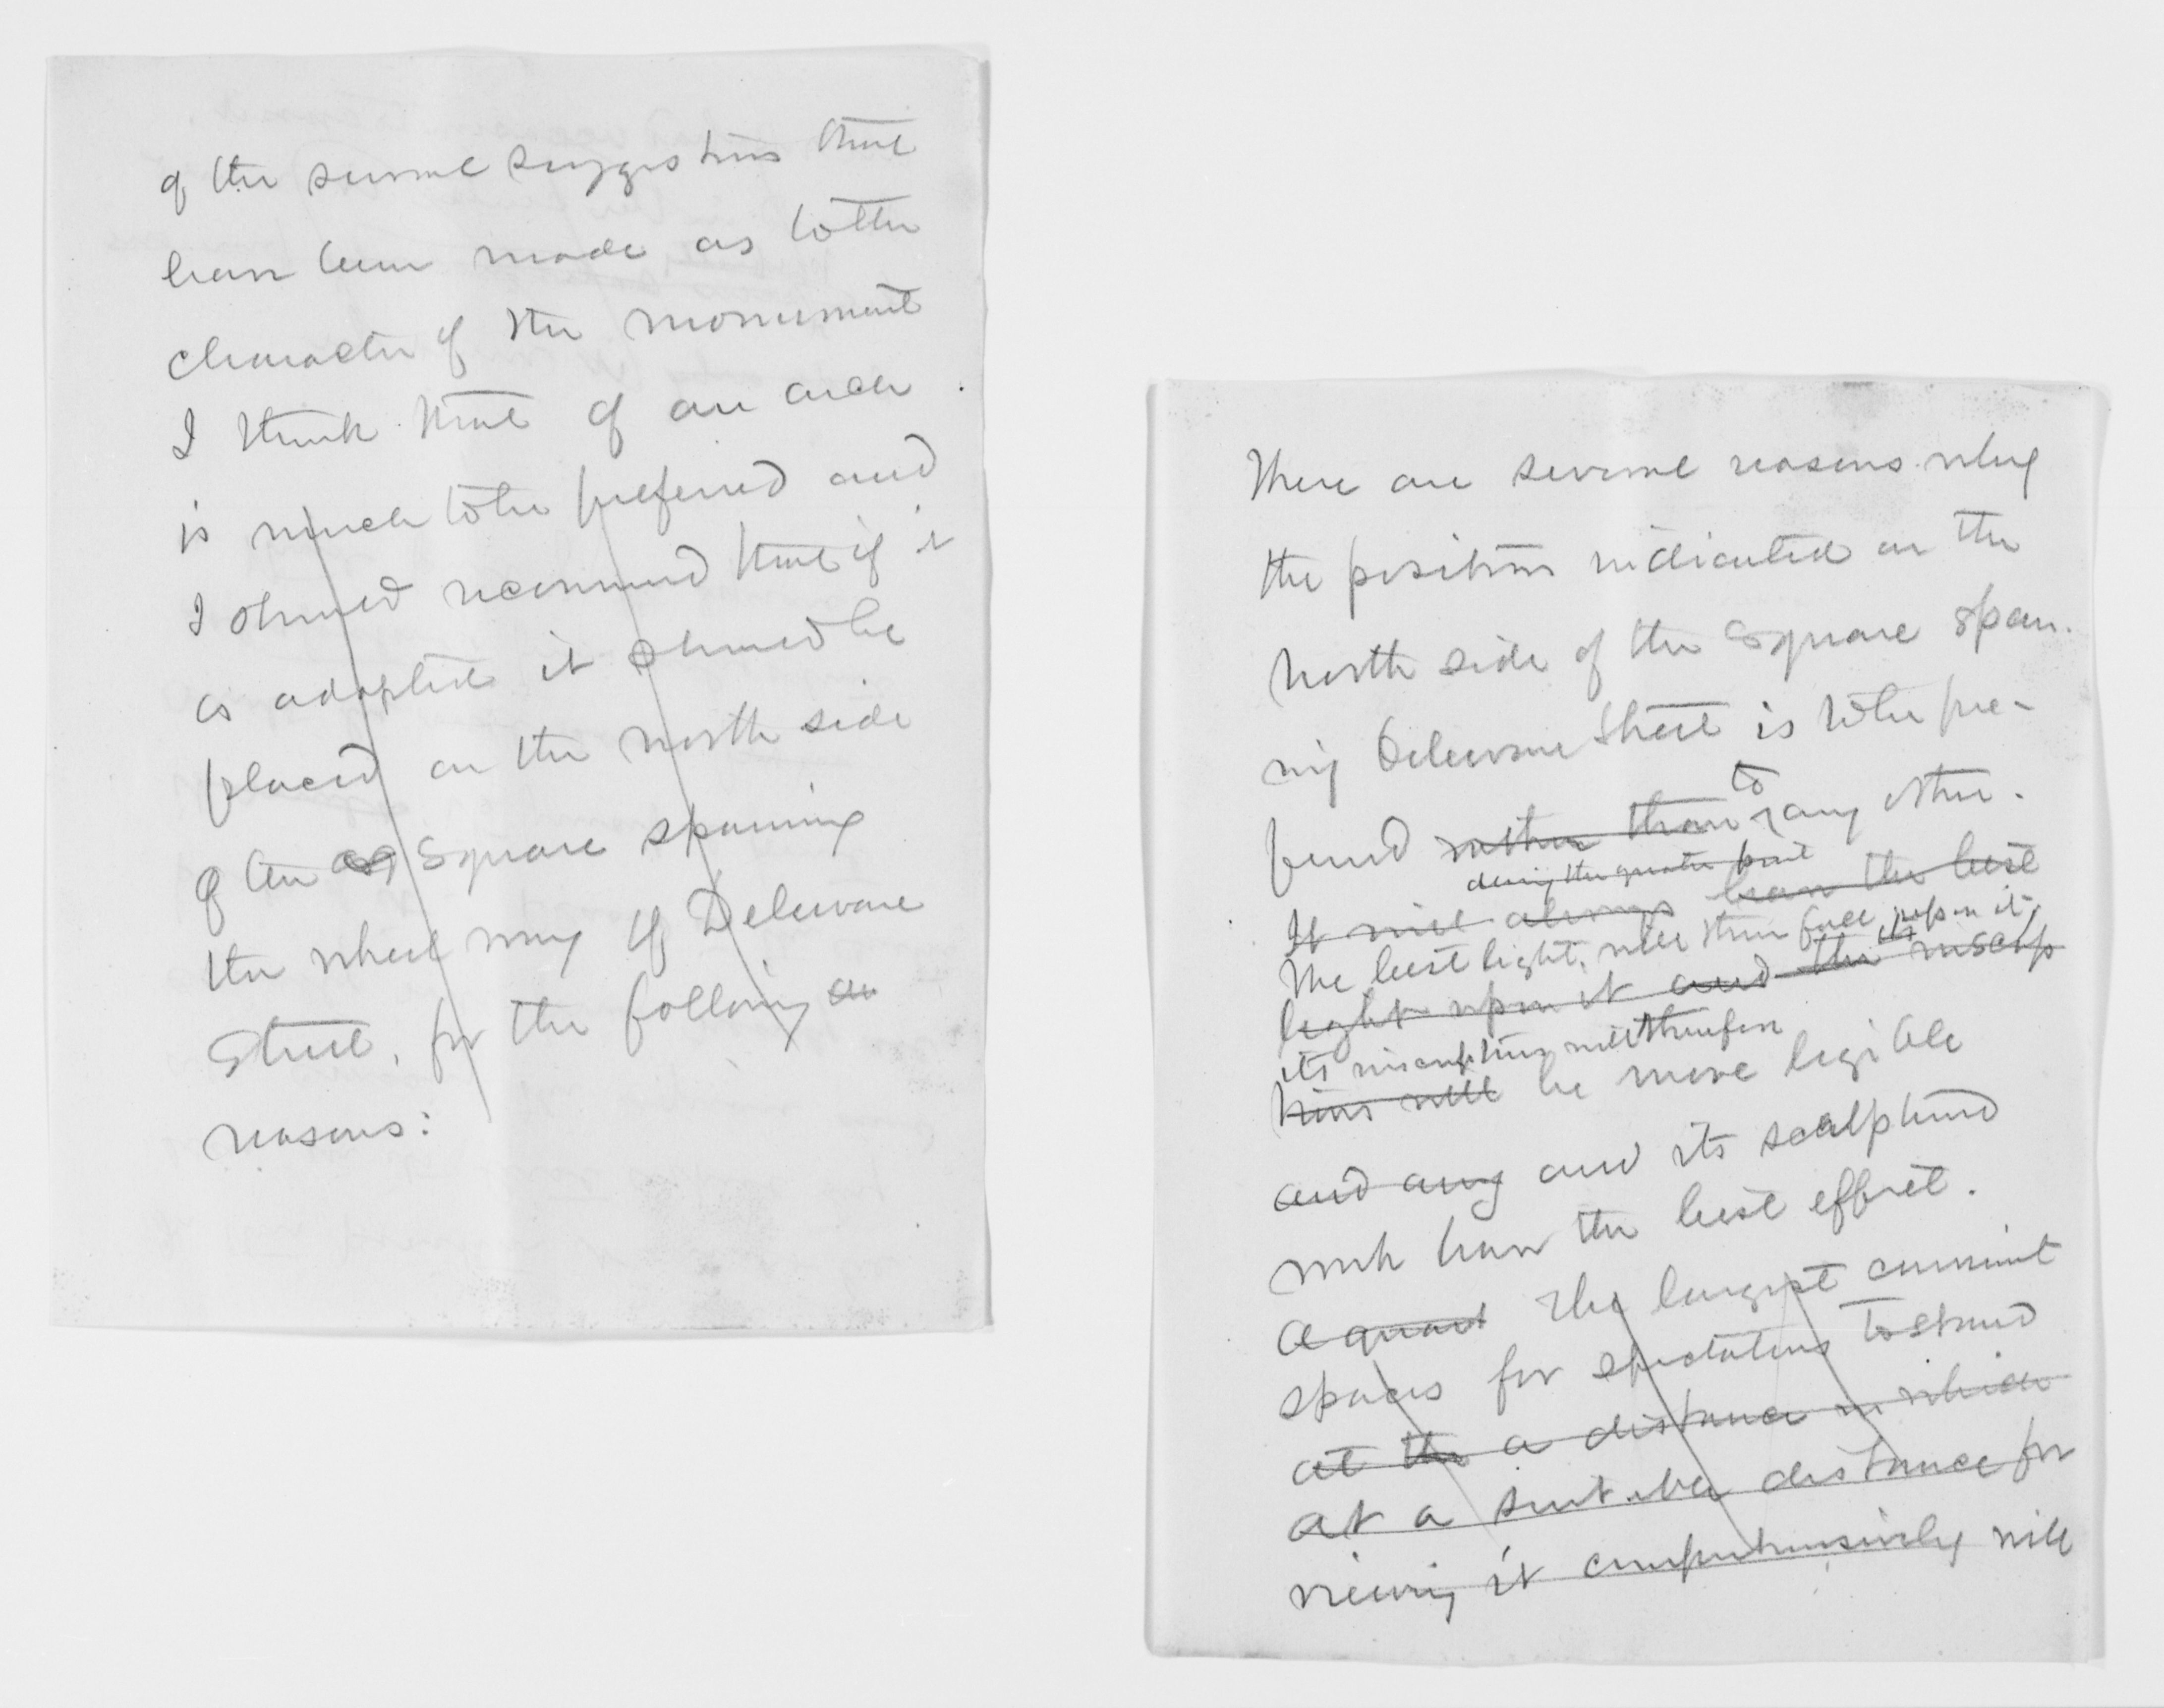 of the several suggestions that
have been made as to the
character of the monument
I think that of an arch
is much to be preferred and
I should recommend that if it
is adopted it should be
placed on the north side
of the Square spanning
the wheel way of Delaware
Street, for the following
reasons:
There are several reasons why
the position indicated on the
north side of the Square span-
ning Delaware Street is to be pre-
to
ferred rather than any other.
during the greater part
It will always have the best
The best light, will then fall upon it.
its
light upon it and the inscrip
its inscriptions will therefore
tions will be more legible
and any and its sculptured
work have the best effect.
A quart The largest
spaces for spectators to stand
at the a distance in which
at a suitable distance for
viewing it comprehensively will